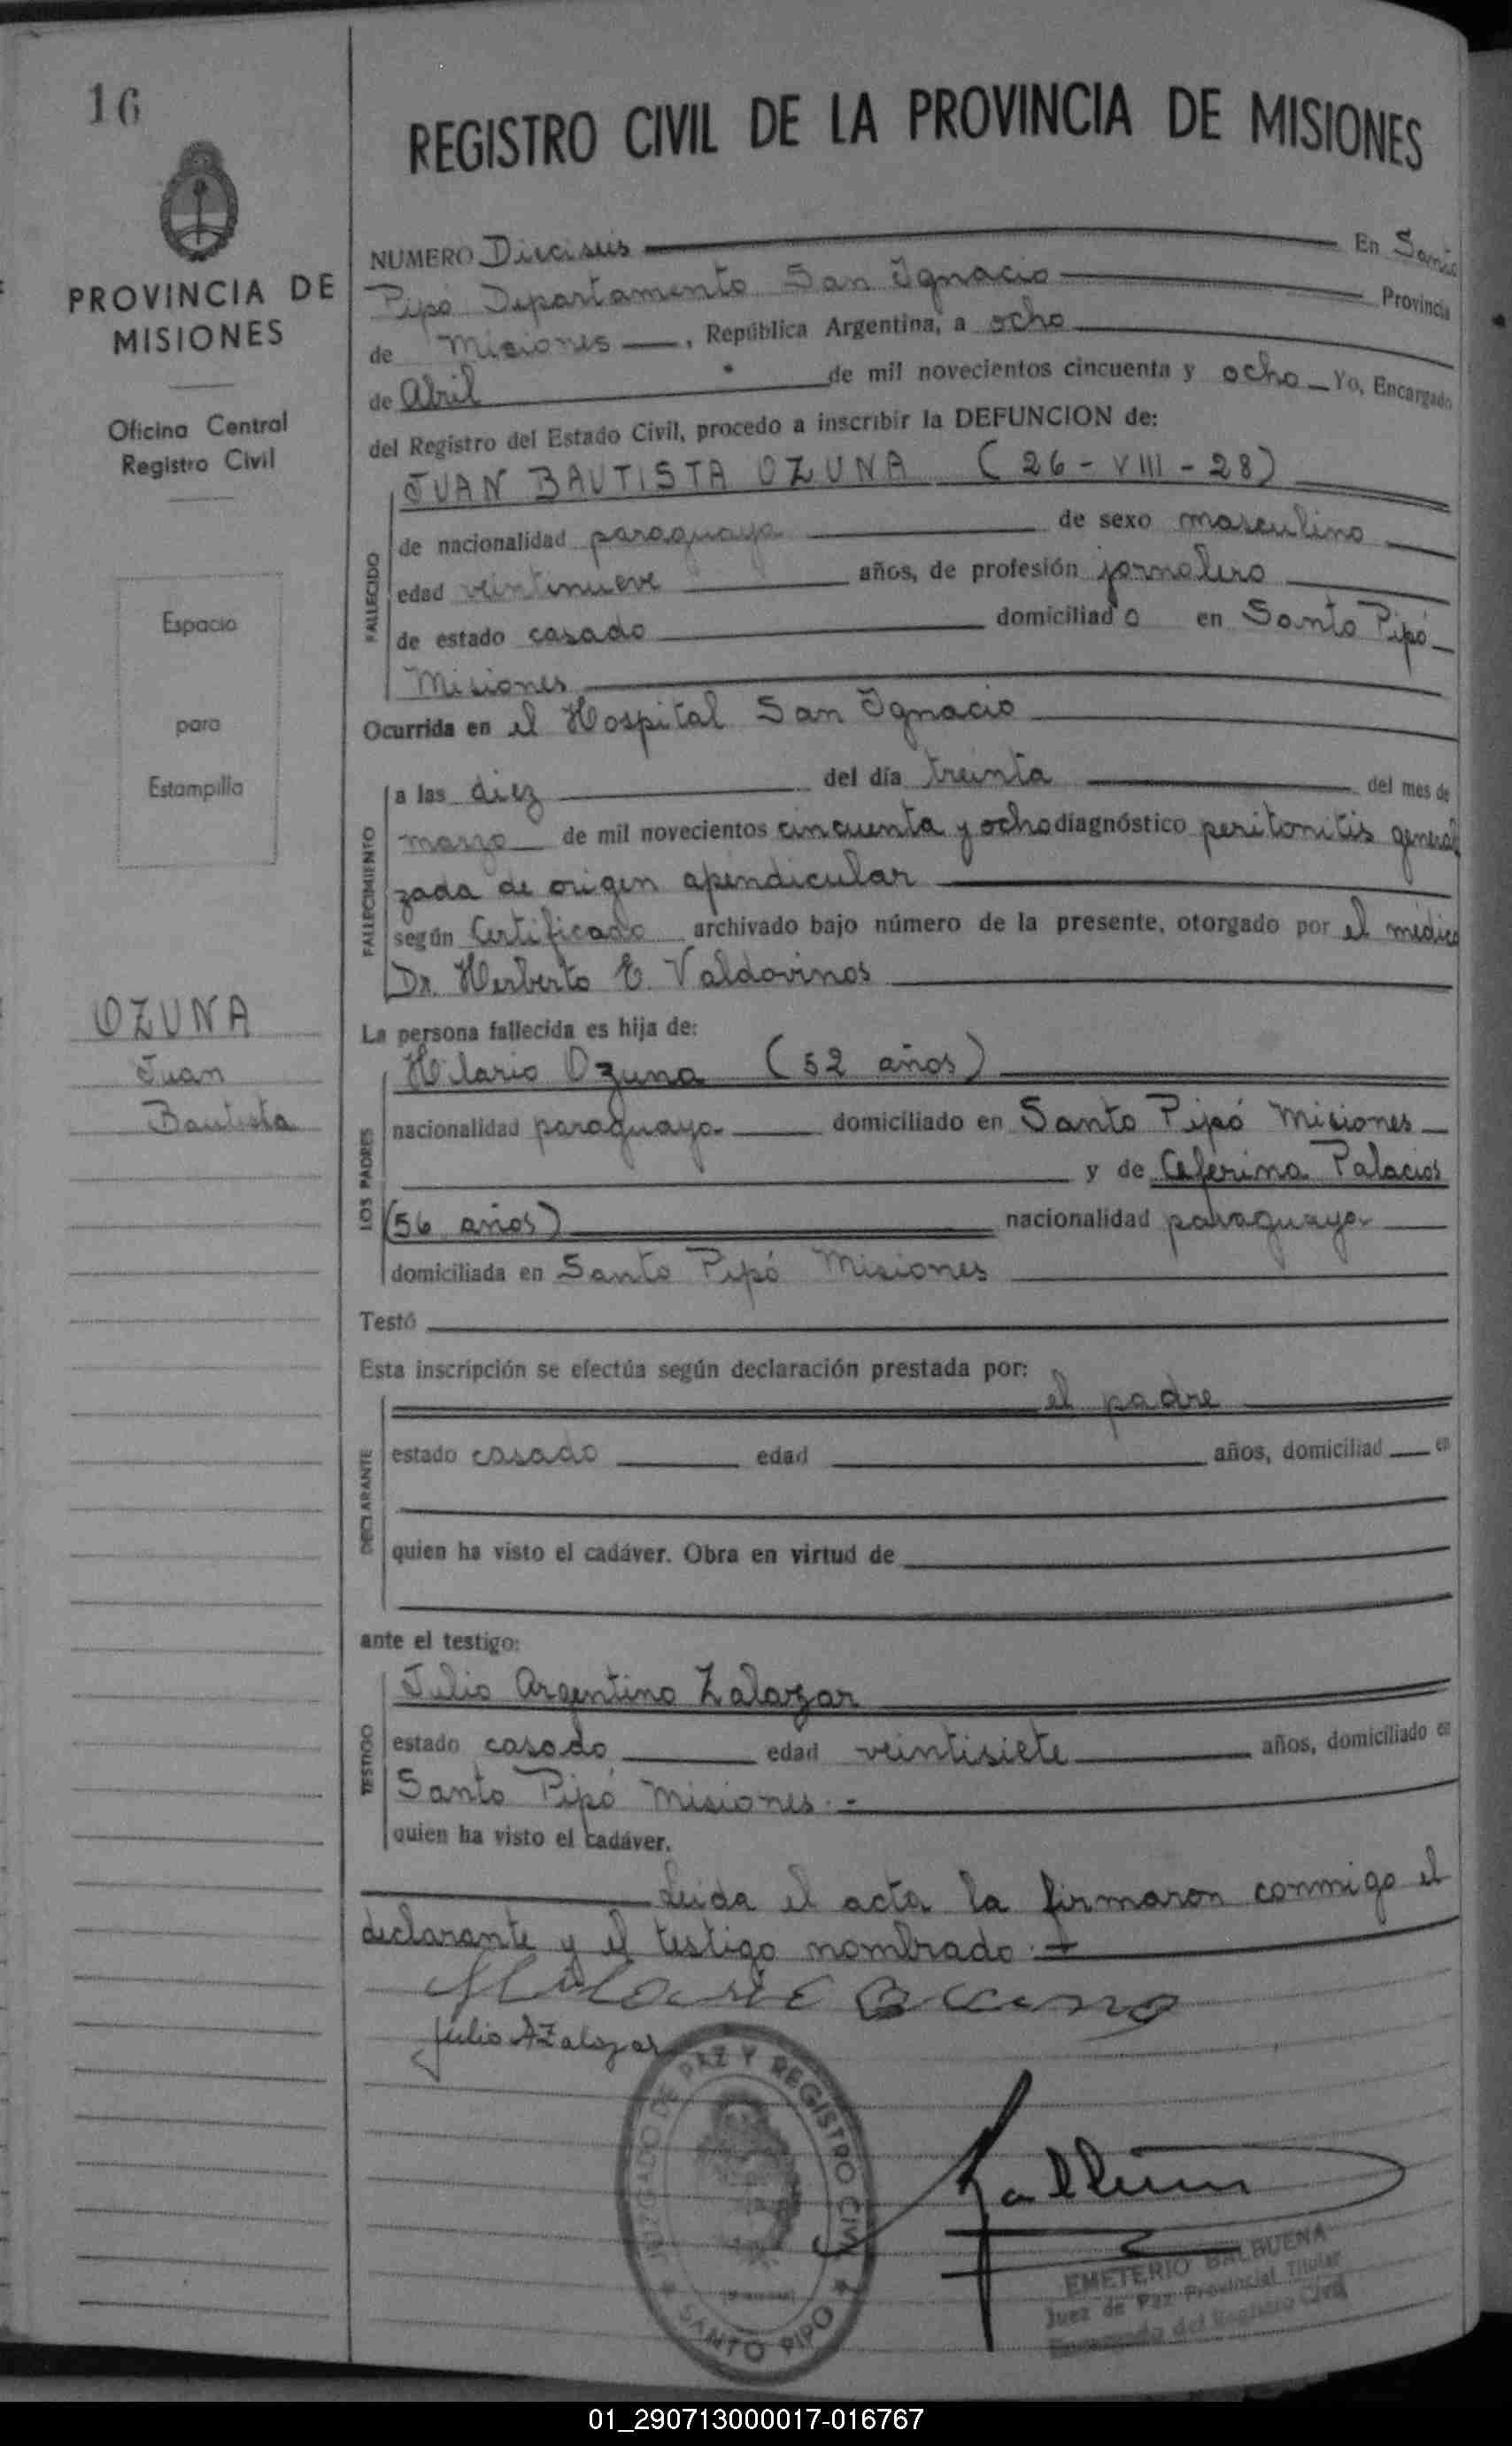 16
PROVINCIA DE
MISIONES
Oficina Central
Registro Civil
Espacio
para
Estampilla
OZUNA
Juan
Bautista
REGISTRO CIVIL DE LA PROVINCIA DE MISIONES
NUMERO Dieciseis En Santo
Pipó Departamento San Ignacio Provincia
de Misiones, República Argentina, a ocho
de Abril de mil novecientos cincuenta y ocho Yo, Encargado
del Registro del Estado Civil, procedo a inscribir la DEFUNCION de:
FALLECIDO
JUAN BAUTISTA OZUNA (26-VIII-28)
de nacionalidad paraguaya de sexo masculino
edad veintinueve años, de profesión jornalero
de estado casado domiciliado en Santo Pipó
Misiones
Ocurrida en el Hospital San Ignacio
FALLECIMIENTO
a las diez del día treinta del mes de
marzo de mil novecientos cincuenta y ocho diagnóstico peritonitis generali
zada de origen apendicular
según Certificado archivado bajo número de la presente, otorgado por el médico
Dr. Herberto E. Valdovinos
La persona fallecida es hija de:
LOS PADRES
Hilario Ozuna (52 años)
nacionalidad paraguaya domiciliado en Santo Pipó Misiones
y de Ceferina Palacios
(56 años) nacionalidad paraguaya
domiciliada en Santo Pipó Misiones
Testó
Esta inscripción se efectúa según declaración prestada por:
DECLARANTE
el padre
estado casado edad años, domiciliad en
quien ha visto el cadáver. Obra en virtud de
ante el testigo:
TESTIGO
Julio Argentino Zalazar
estado casado edad veintisiete años, domiciliado en
Santo Pipó Misiones.-
quien ha visto el cadáver.
Leida el acta la firmaron conmigo el
declarante y el testigo nombrado.
Julio A Zalazar
JUZGADO DE PAZ Y REGISTRO CIVIL
SANTO PIPO
EMETERIO BALBUENA
Juez de Paz Provincial Titular
Encargado del Registro Civil
01_290713000017-016767